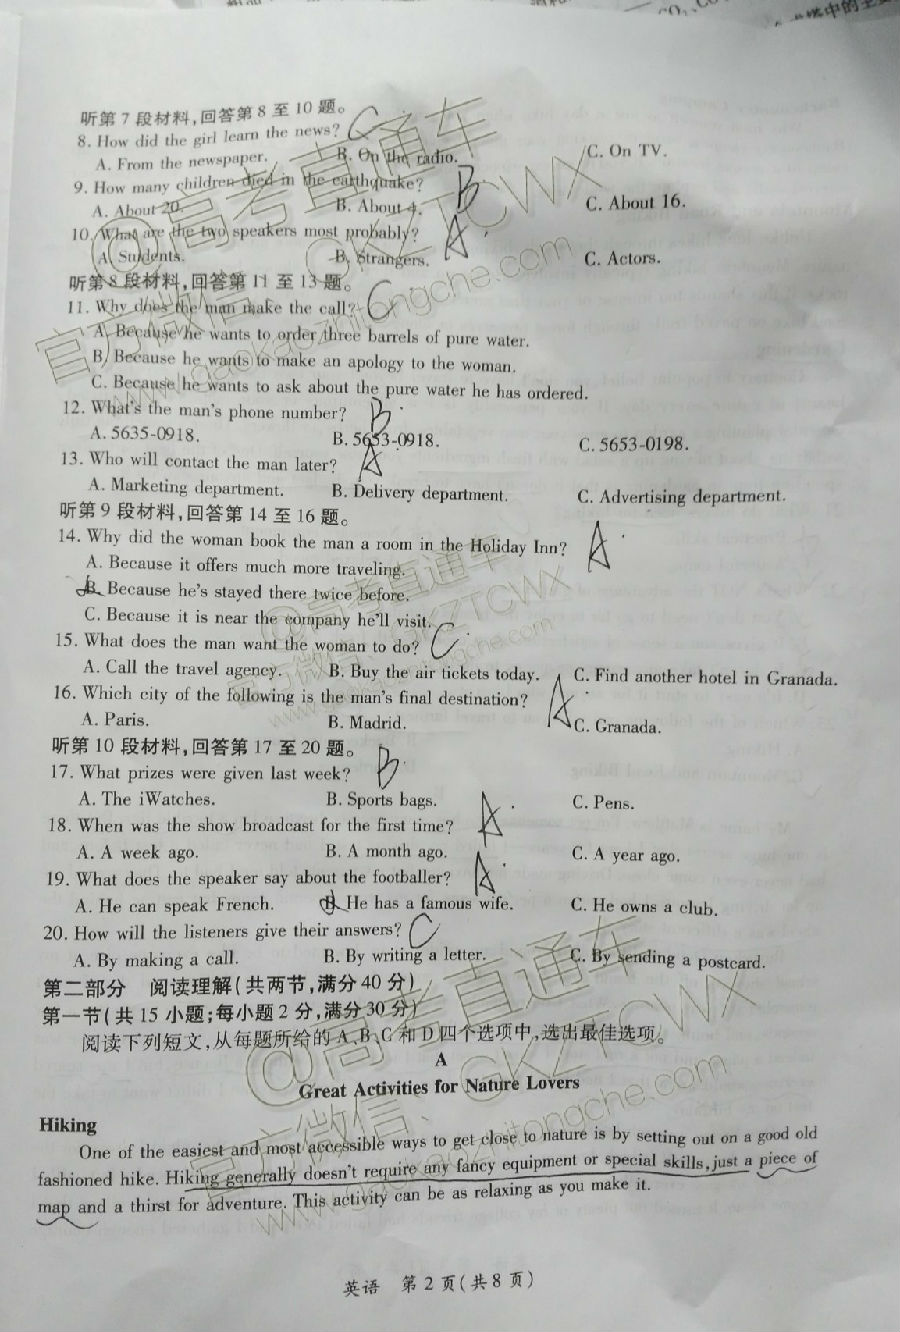 听第 7 段材料,回答第 8 至 10 题。
8. How did the girl learn the news? C
A. From the newspaper. B. On the radio. C. On TV.
9. How many children died in the earthquake? B
A. About 20. B. About 4. C. About 16.
10. What are the two speakers most probably? A
A. Students. B. Strangers. C. Actors.
听第 8 段材料,回答第 11 至 13 题。
11. Why does the man make the call? C
A. Because he wants to order three barrels of pure water.
B. Because he wants to make an apology to the woman.
C. Because he wants to ask about the pure water he has ordered.
12. What's the man's phone number? B
A. 5635-0918. B. 5653-0918. C. 5653-0198.
13. Who will contact the man later? A
A. Marketing department. B. Delivery department. C. Advertising department.
听第 9 段材料,回答第 14 至 16 题。
14. Why did the woman book the man a room in the Holiday Inn? A
A. Because it offers much more traveling.
B. Because he's stayed there twice before.
C. Because it is near the company he'll visit.
15. What does the man want the woman to do? C
A. Call the travel agency. B. Buy the air tickets today. C. Find another hotel in Granada.
16. Which city of the following is the man's final destination? A
A. Paris. B. Madrid. C. Granada.
听第 10 段材料,回答第 17 至 20 题。
17. What prizes were given last week? B
A. The iWatches. B. Sports bags. C. Pens.
18. When was the show broadcast for the first time? A
A. A week ago. B. A month ago. C. A year ago.
19. What does the speaker say about the footballer? A
A. He can speak French. B. He has a famous wife. C. He owns a club.
20. How will the listeners give their answers? C
A. By making a call. B. By writing a letter. C. By sending a postcard.
第二部分 阅读理解(共两节,满分 40 分)
第一节(共 15 小题;每小题 2 分,满分 30 分)
阅读下列短文,从每题所给的 A、B、C 和 D 四个选项中,选出最佳选项。
A
Great Activities for Nature Lovers
Hiking
One of the easiest and most accessible ways to get close to nature is by setting out on a good old
fashioned hike. Hiking generally doesn't require any fancy equipment or special skills, just a piece of
map and a thirst for adventure. This activity can be as relaxing as you make it.
英语 第 2 页(共 8 页)
@高考直通车
官方微信：GKZTCWX
www.gaokaozhitongche.com
@高考直通车
官方微信：GKZTCWX
www.gaokaozhitongche.com
@高考直通车
官方微信：GKZTCWX
www.gaokaozhitongche.com